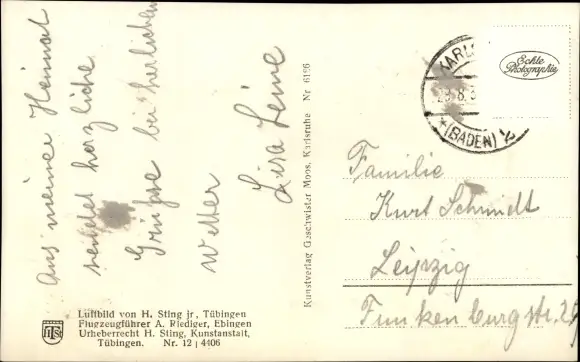 Aus meiner Heimat
sendet herzliche
Grüße bei herlichem
Wetter
Lisa Leine
Luftbild von H. Sting jr, Tübingen
Flugzeugführer A. Riediger, Ebingen
Urheberrecht H. Sting, Kunstanstalt,
Tübingen. Nr. 12 | 4406
HSt
Kunstverlag Geschwister Moos, Karlsruhe Nr 6196
KARLS
(BADEN)
Echte
Photographie
Familie
Kurt Schmidt
Leipzig
Funkenburgstr. 2